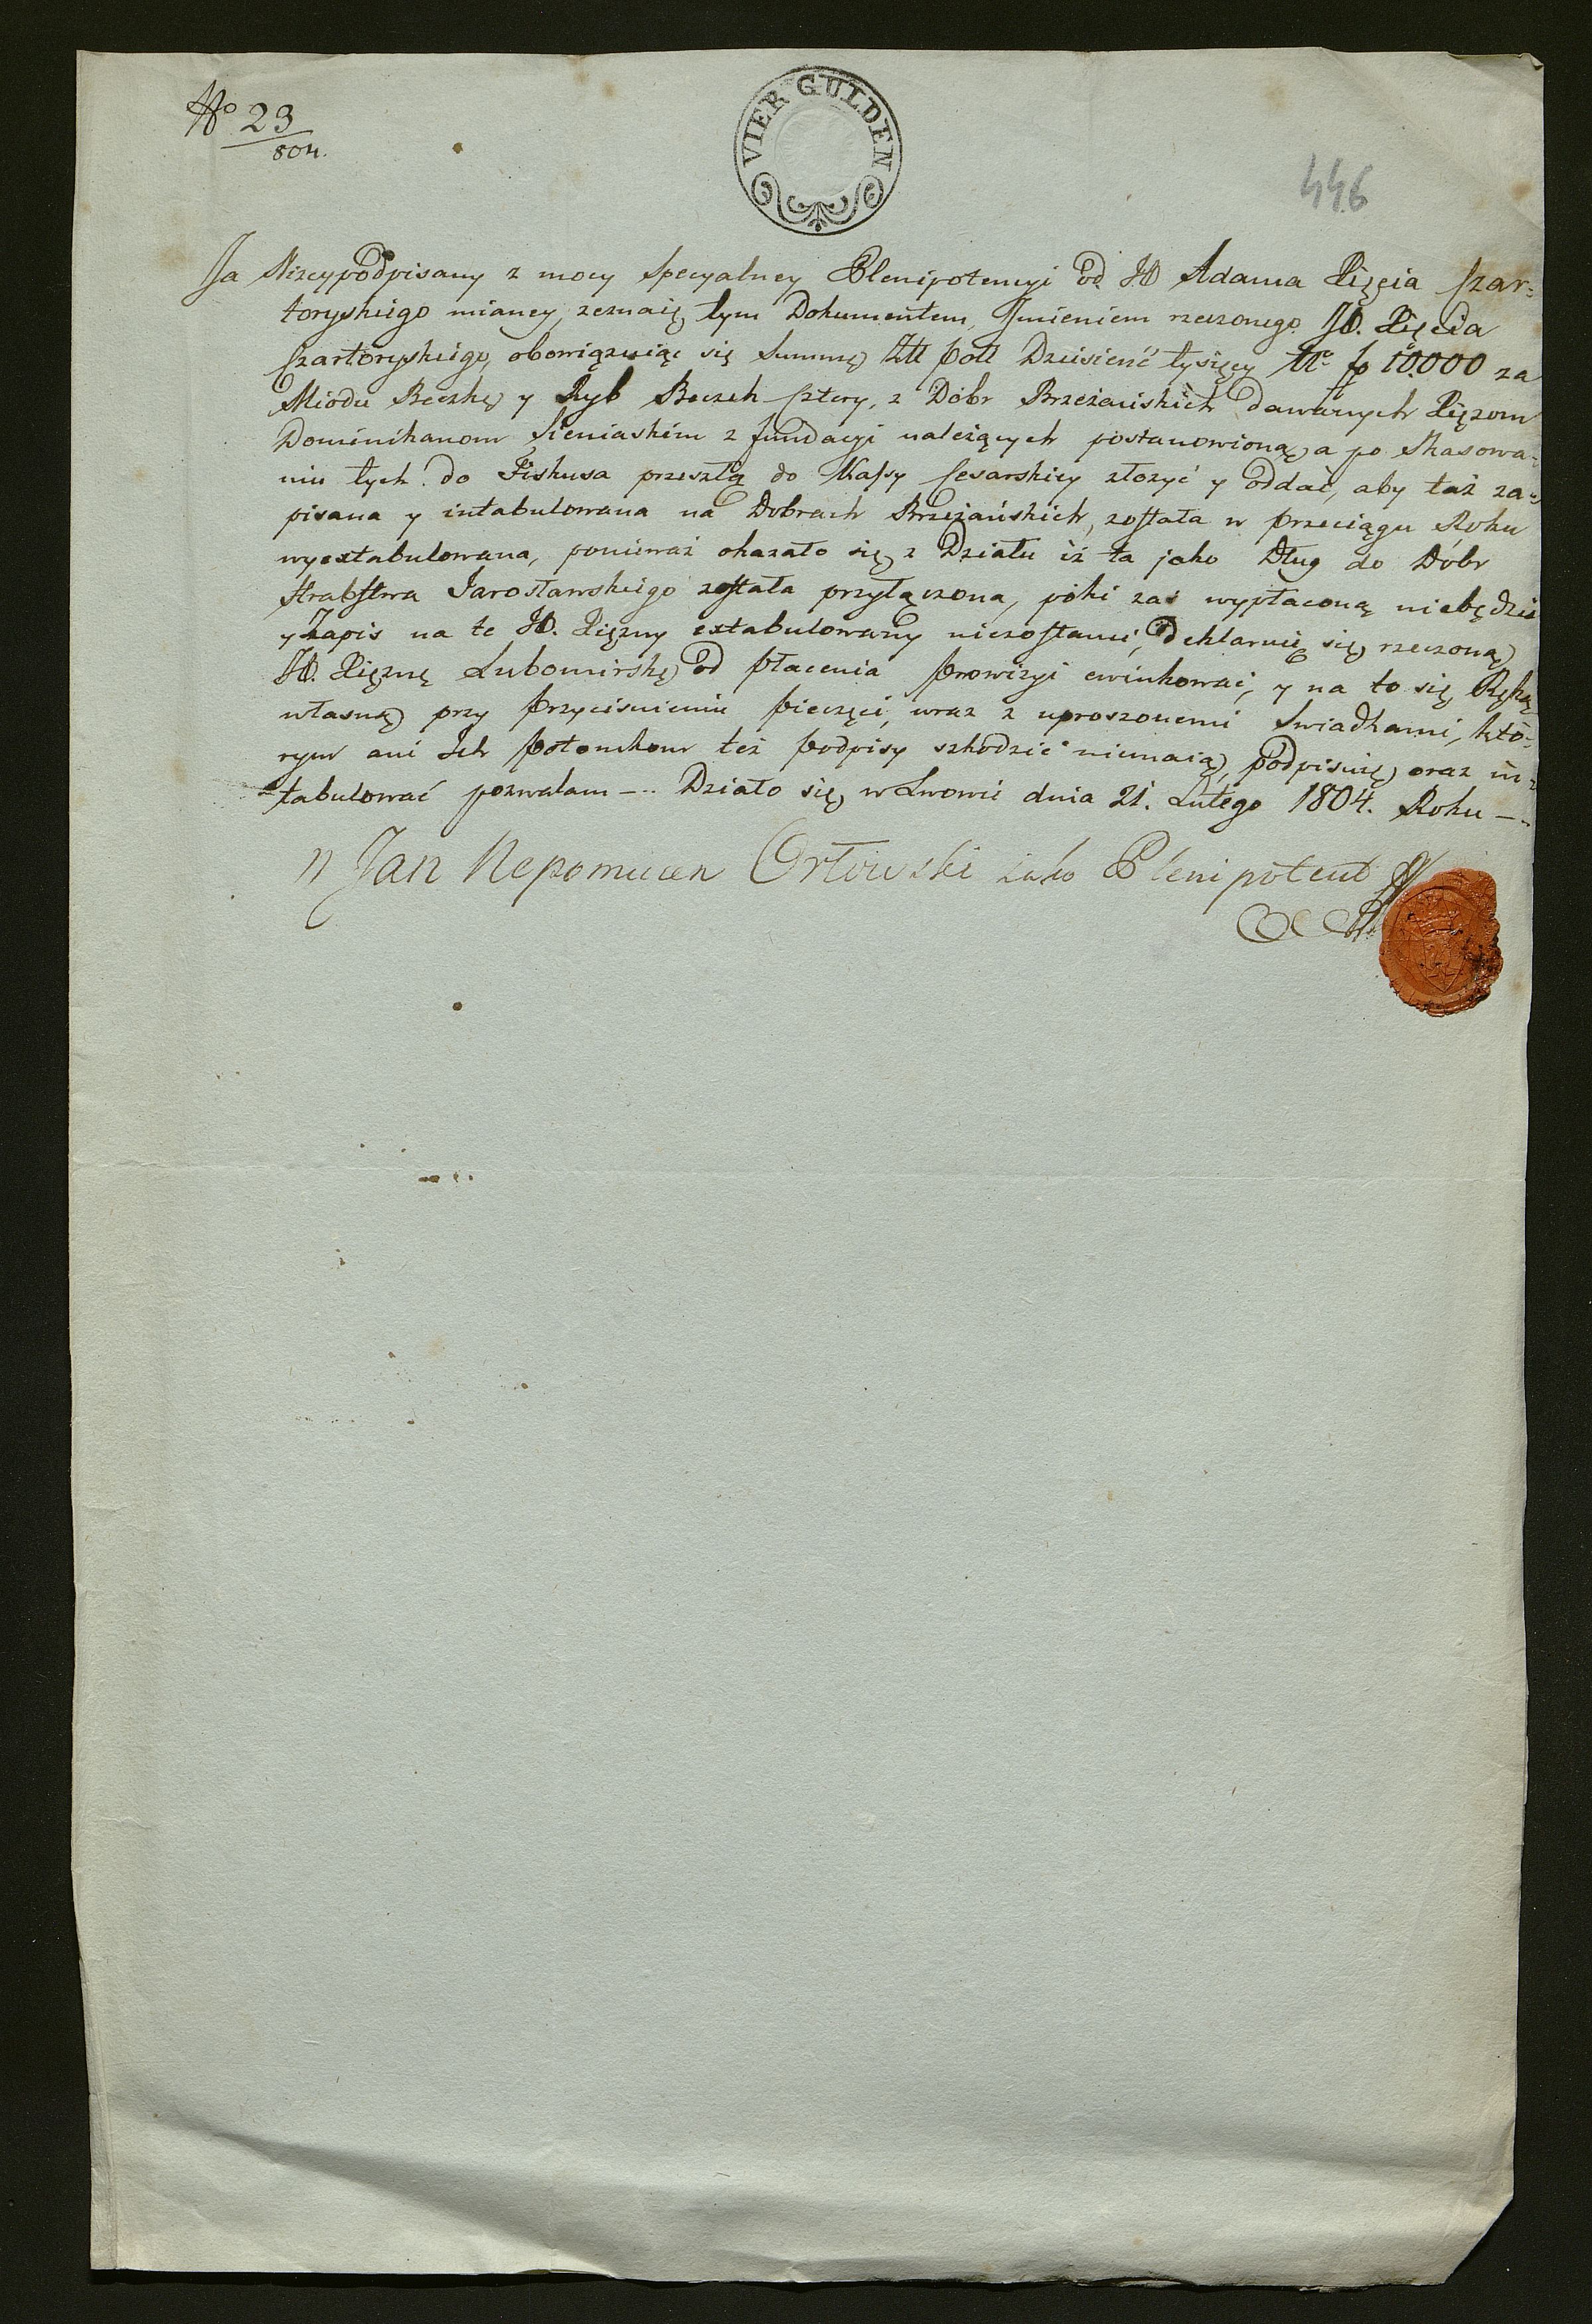 No 23
804.
VIER GULDEN
446
Ja Niżeypodpisany z mocy specyalney Plenipotencyi od JO Adama Xięcia Czar=
toryskiego mianey, zeznaię tym Dokumentem, Jmieniem rzeczonego JO. Xięcia
Czartoryskiego, obowiązuiąc się Summę Ztł poll Dziesienć tysięcy No fp 10.000 za
Miodu Beczkę y Ryb Beczek Cztery, z Dóbr Brzeżańskich dawanych Xięzom
Dominikanom Sieniaskim z fundacyi należących postanowioną, a po Skasowa=
niu tych do Fiskusa przeszłą do Kassy Cesarskiey złożyć y oddać, aby taż za=
pisana y intabulowana na Dobrach Brzeżańskich, została w przeciągu Roku
wyextabulowana, ponieważ okazało się z Działu iż ta jako Dług do Dóbr
Hrabstwa Jarosławskiego została przyłączona, póki zaś wypłaconą niebędzie
y Zapis na te JO. Xiężny extabulowany niezostanie, deklaruię się rzeczoną
JO. Xiężnę Lubomirskę od płacenia prowizyi ewinkować, y na to się Ręką
własną przy przyciśnieniu pieczęci, wraz z uproszonemi Swiadkami, któ=
rym ani Ich potomkom też podpisy szkodzić niemaią, podpisuię, oraz in=
tabulować pozwalam —.. Działo się w Lwowie dnia 21. Lutego 1804. Roku —..
Jan Nepomucen Orłowski iako Plenipotent